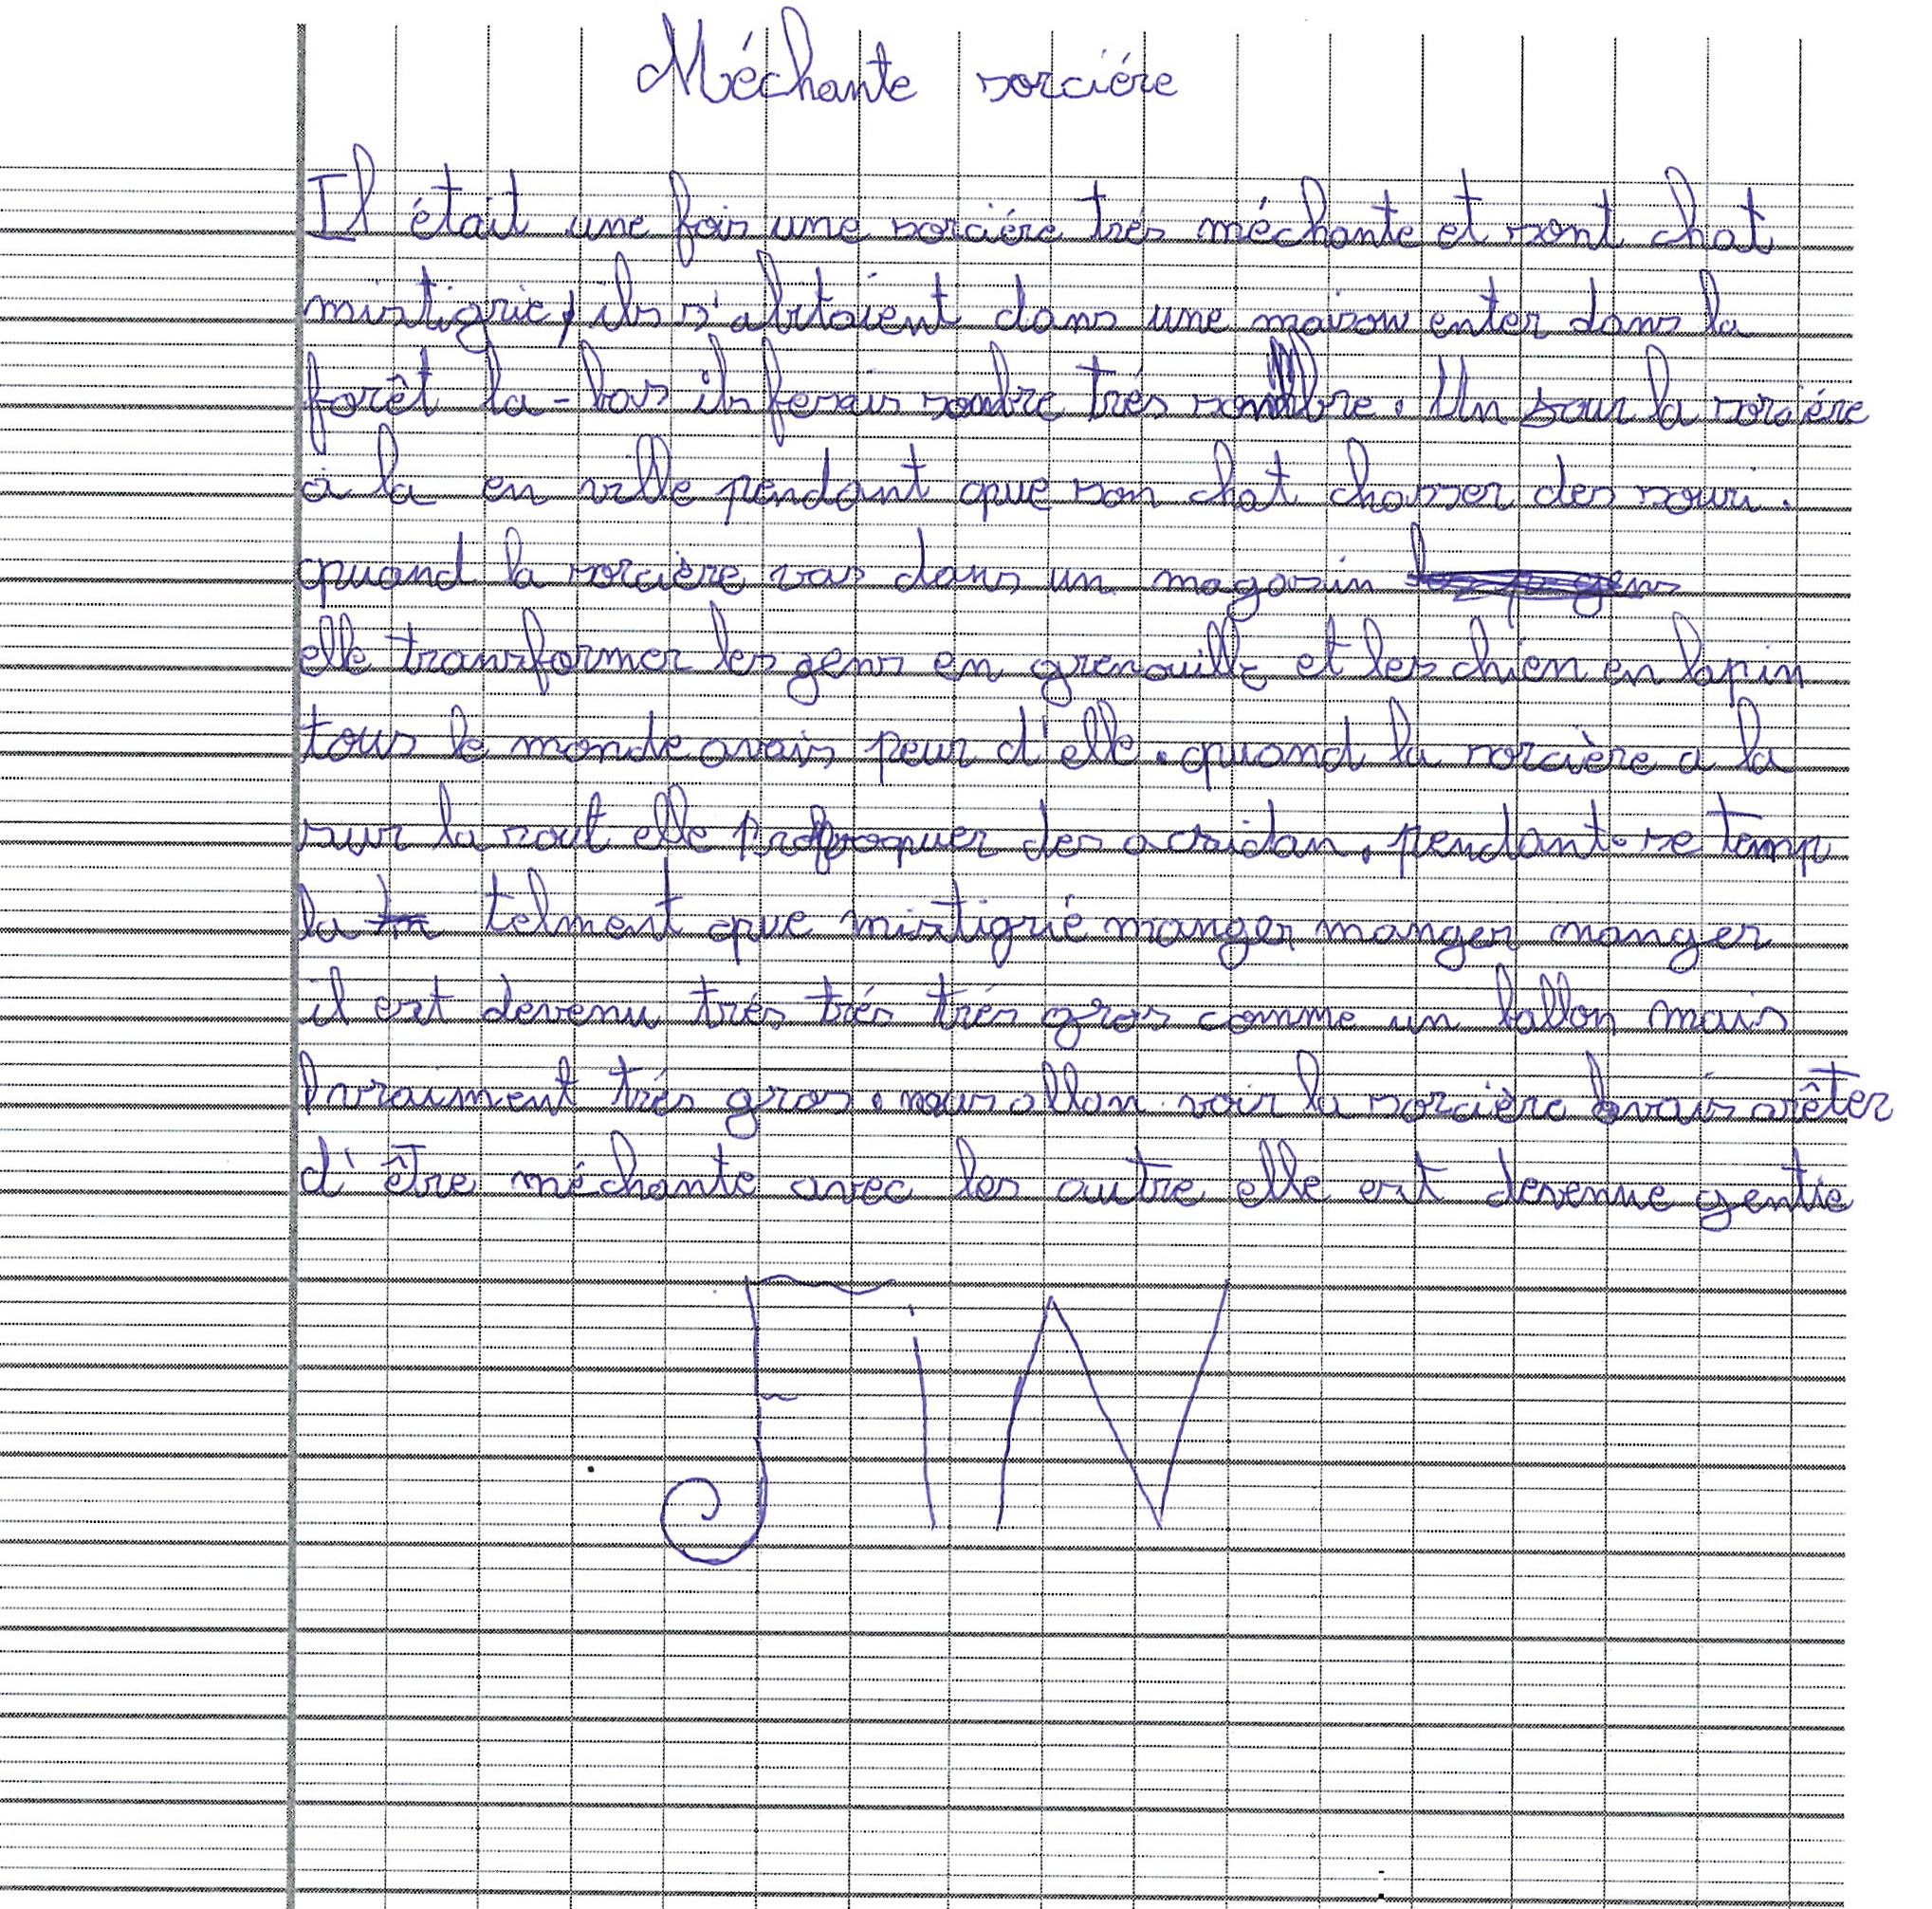 Méchante sorciére
Il était une fois une sorciére trés méchante et sont chat
mistigrie, ils s'abitaient dans une maison enter dans la
forêt la-bas ils fesais sombre trés sombre. Un jour la sorciére
à la en ville pendant que son chat chasser des souri.
quand la sorcière vas dans un magasin
elle transformer les gens en grenouille et les chien en lapin
tous le monde avais peur d'elle. quand la sorcière a la
sur la rout elle proroquer des acsidan. pendant se temp
la telment que mistigrie manger manger manger
il est devenu trés trés trés gros comme un ballon mais
vraiment trés gros. nous allon voir la sorcière avais arêter
d'être méchante avec les autre elle est devenue gentie
FiN